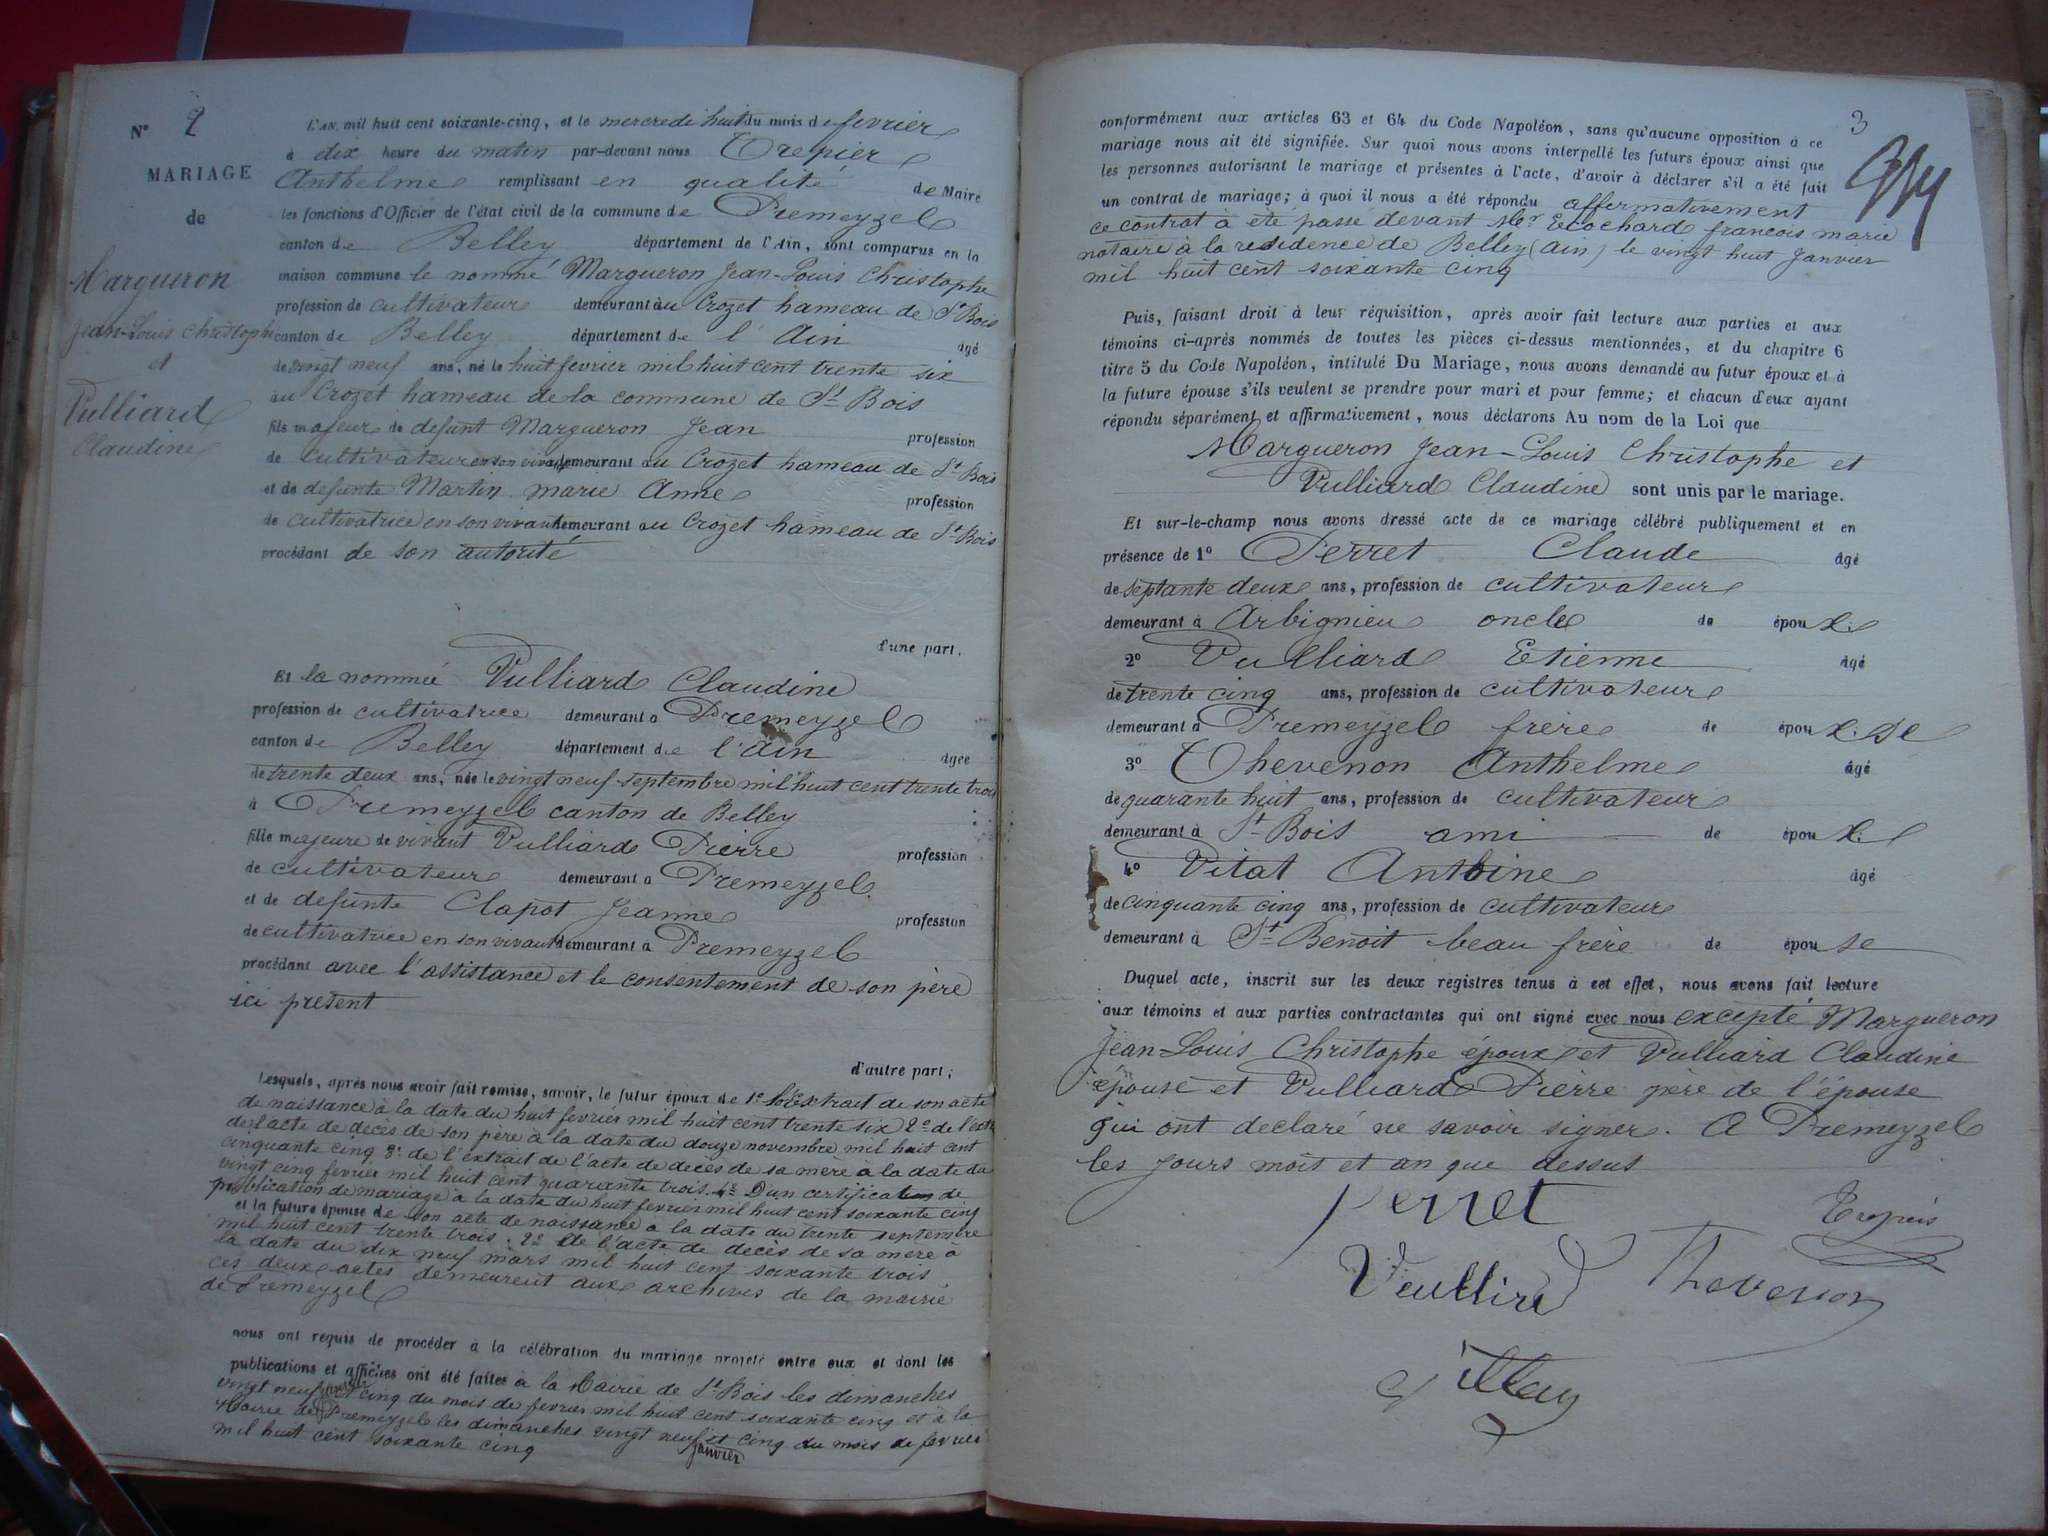 N° 2
MARIAGE
de
Margueron
Jean-Louis Christophe
et
Vulliard
Claudine
L'AN mil huit cent soixante-cinq, et le mercredi huit du mois de fevrier
à dix heure du matin par-devant nous Trepier
Anthelme remplissant en qualité de Maire
les fonctions d'Officier de l'état civil de la commune de Premeyzel
canton de Belley département de l'Ain, sont comparus en la
maison commune le nommé Margueron Jean-Louis Christophe
profession de cultivateur demeurant au Crozet hameau de St Bois
canton de Belley département de l'Ain âgé
de vingt neuf ans, né le huit fevrier mil huit cent trente six
au Crozet hameau de la commune de St Bois
fils majeur de defunt Margueron Jean profession
de cultivateur en son vivant demeurant au Crozet hameau de St Bois
et de defunte Martin marie Anne profession
de cultivatrice en son vivant demeurant au Crozet hameau de St Bois
procédant de son autorité
d'une part.
Et la nommée Vulliard Claudine
profession de cultivatrice demeurant a Premeyzel
canton de Belley département de l'Ain âgée
de trente deux ans, née le vingt neuf septembre mil huit cent trente trois
à Premeyzel canton de Belley
fille majeure de vivant Vulliard Pierre profession
de cultivateur demeurant a Premeyzel
et de defunte Clapot Jeanne profession
de cultivatrice en son vivant demeurant à Premeyzel
procédant avec l'assistance et le consentement de son père
ici présent
d'autre part;
Lesquels, après nous avoir fait remise, savoir, le futur époux de 1° l'Extrait de son acte
de naissance à la date du huit fevrier mil huit cent trente six 2° de l'extr
de l'acte de decès de son père à la date du douze novembre mil huit cent
cinquante cinq 3° de l'extrait de l'acte de decès de sa mère à la date du
vingt cinq fevrier mil huit cent quarante trois. 4° D'un certificat de
publication de mariage à la date du huit fevrier mil huit cent soixante cinq
et la future épouse de son acte de naissance a la date du trente septembre
mil huit cent trente trois. 2° de l'acte de decès de sa mère à
la date du dix neuf mars mil huit cent soixante trois
ces deux actes demeurent aux archives de la mairie
de Premeyzel
nous ont requis de procéder à la célébration du mariage projeté entre eux et dont les
publications et affiches ont été faites à la Mairie de St Bois les dimanches
vingt neuf janvier et cinq du mois de fevrier mil huit cent soixante cinq et à la
Mairie de Premeyzel les dimanches vingt neuf janvier et cinq du mois de fevrier
mil huit cent soixante cinq
3
conformément aux articles 63 et 64 du Code Napoléon, sans qu'aucune opposition à ce
mariage nous ait été signifiée. Sur quoi nous avons interpellé les futurs époux ainsi que
les personnes autorisant le mariage et présentes à l'acte, d'avoir à déclarer s'il a été fait
un contrat de mariage; à quoi il nous a été répondu affermativement
ce contrat à été passé devant Mer Ecochard francois marie
notaire à la residence de Belley (Ain) le vingt huit Janvier
mil huit cent soixante cinq
Puis, faisant droit à leur réquisition, après avoir fait lecture aux parties et aux
témoins ci-après nommés de toutes les pièces ci-dessus mentionnées, et du chapitre 6
titre 5 du Code Napoléon, intitulé Du Mariage, nous avons demandé au futur époux et à
la future épouse s'ils veulent se prendre pour mari et pour femme; et chacun d'eux ayant
répondu séparément et affirmativement, nous déclarons Au nom de la Loi que
Margueron Jean-Louis Christophe et
Vulliard Claudine sont unis par le mariage.
Et sur-le-champ nous avons dressé acte de ce mariage célébré publiquement et en
présence de 1° Perret Claude âgé
de septante deux ans, profession de cultivateur
demeurant à Arbignieu oncle de épou x.
2° Vulliard Etienne âgé
de trente cinq ans, profession de cultivateur
demeurant à Premeyzel frère de épou x. se
3° Thevenon Anthelme âgé
de quarante huit ans, profession de cultivateur
demeurant à St Bois ami de épou x.
4° Vitat Antoine âgé
de cinquante cinq ans, profession de cultivateur
demeurant à St Benoit beau frère de épou se
Duquel acte, inscrit sur les deux registres tenus à cet effet, nous avons fait lecture
aux témoins et aux parties contractantes qui ont signé avec nous excepté Margueron
Jean-Louis Christophe époux et Vulliard Claudine
épouse et Vulliard Pierre père de l'épouse
qui ont declaré ne savoir signer. A Premeyzel
les jours mois et an que dessus
Perret
Vulliard Thevenon